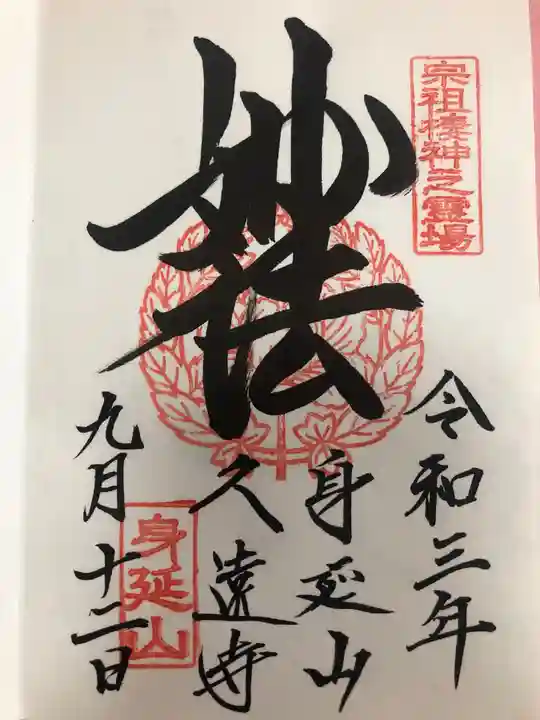 宗祖棲神之霊場
令和三年
妙法
身延山
久遠寺
身延山
九月十二日